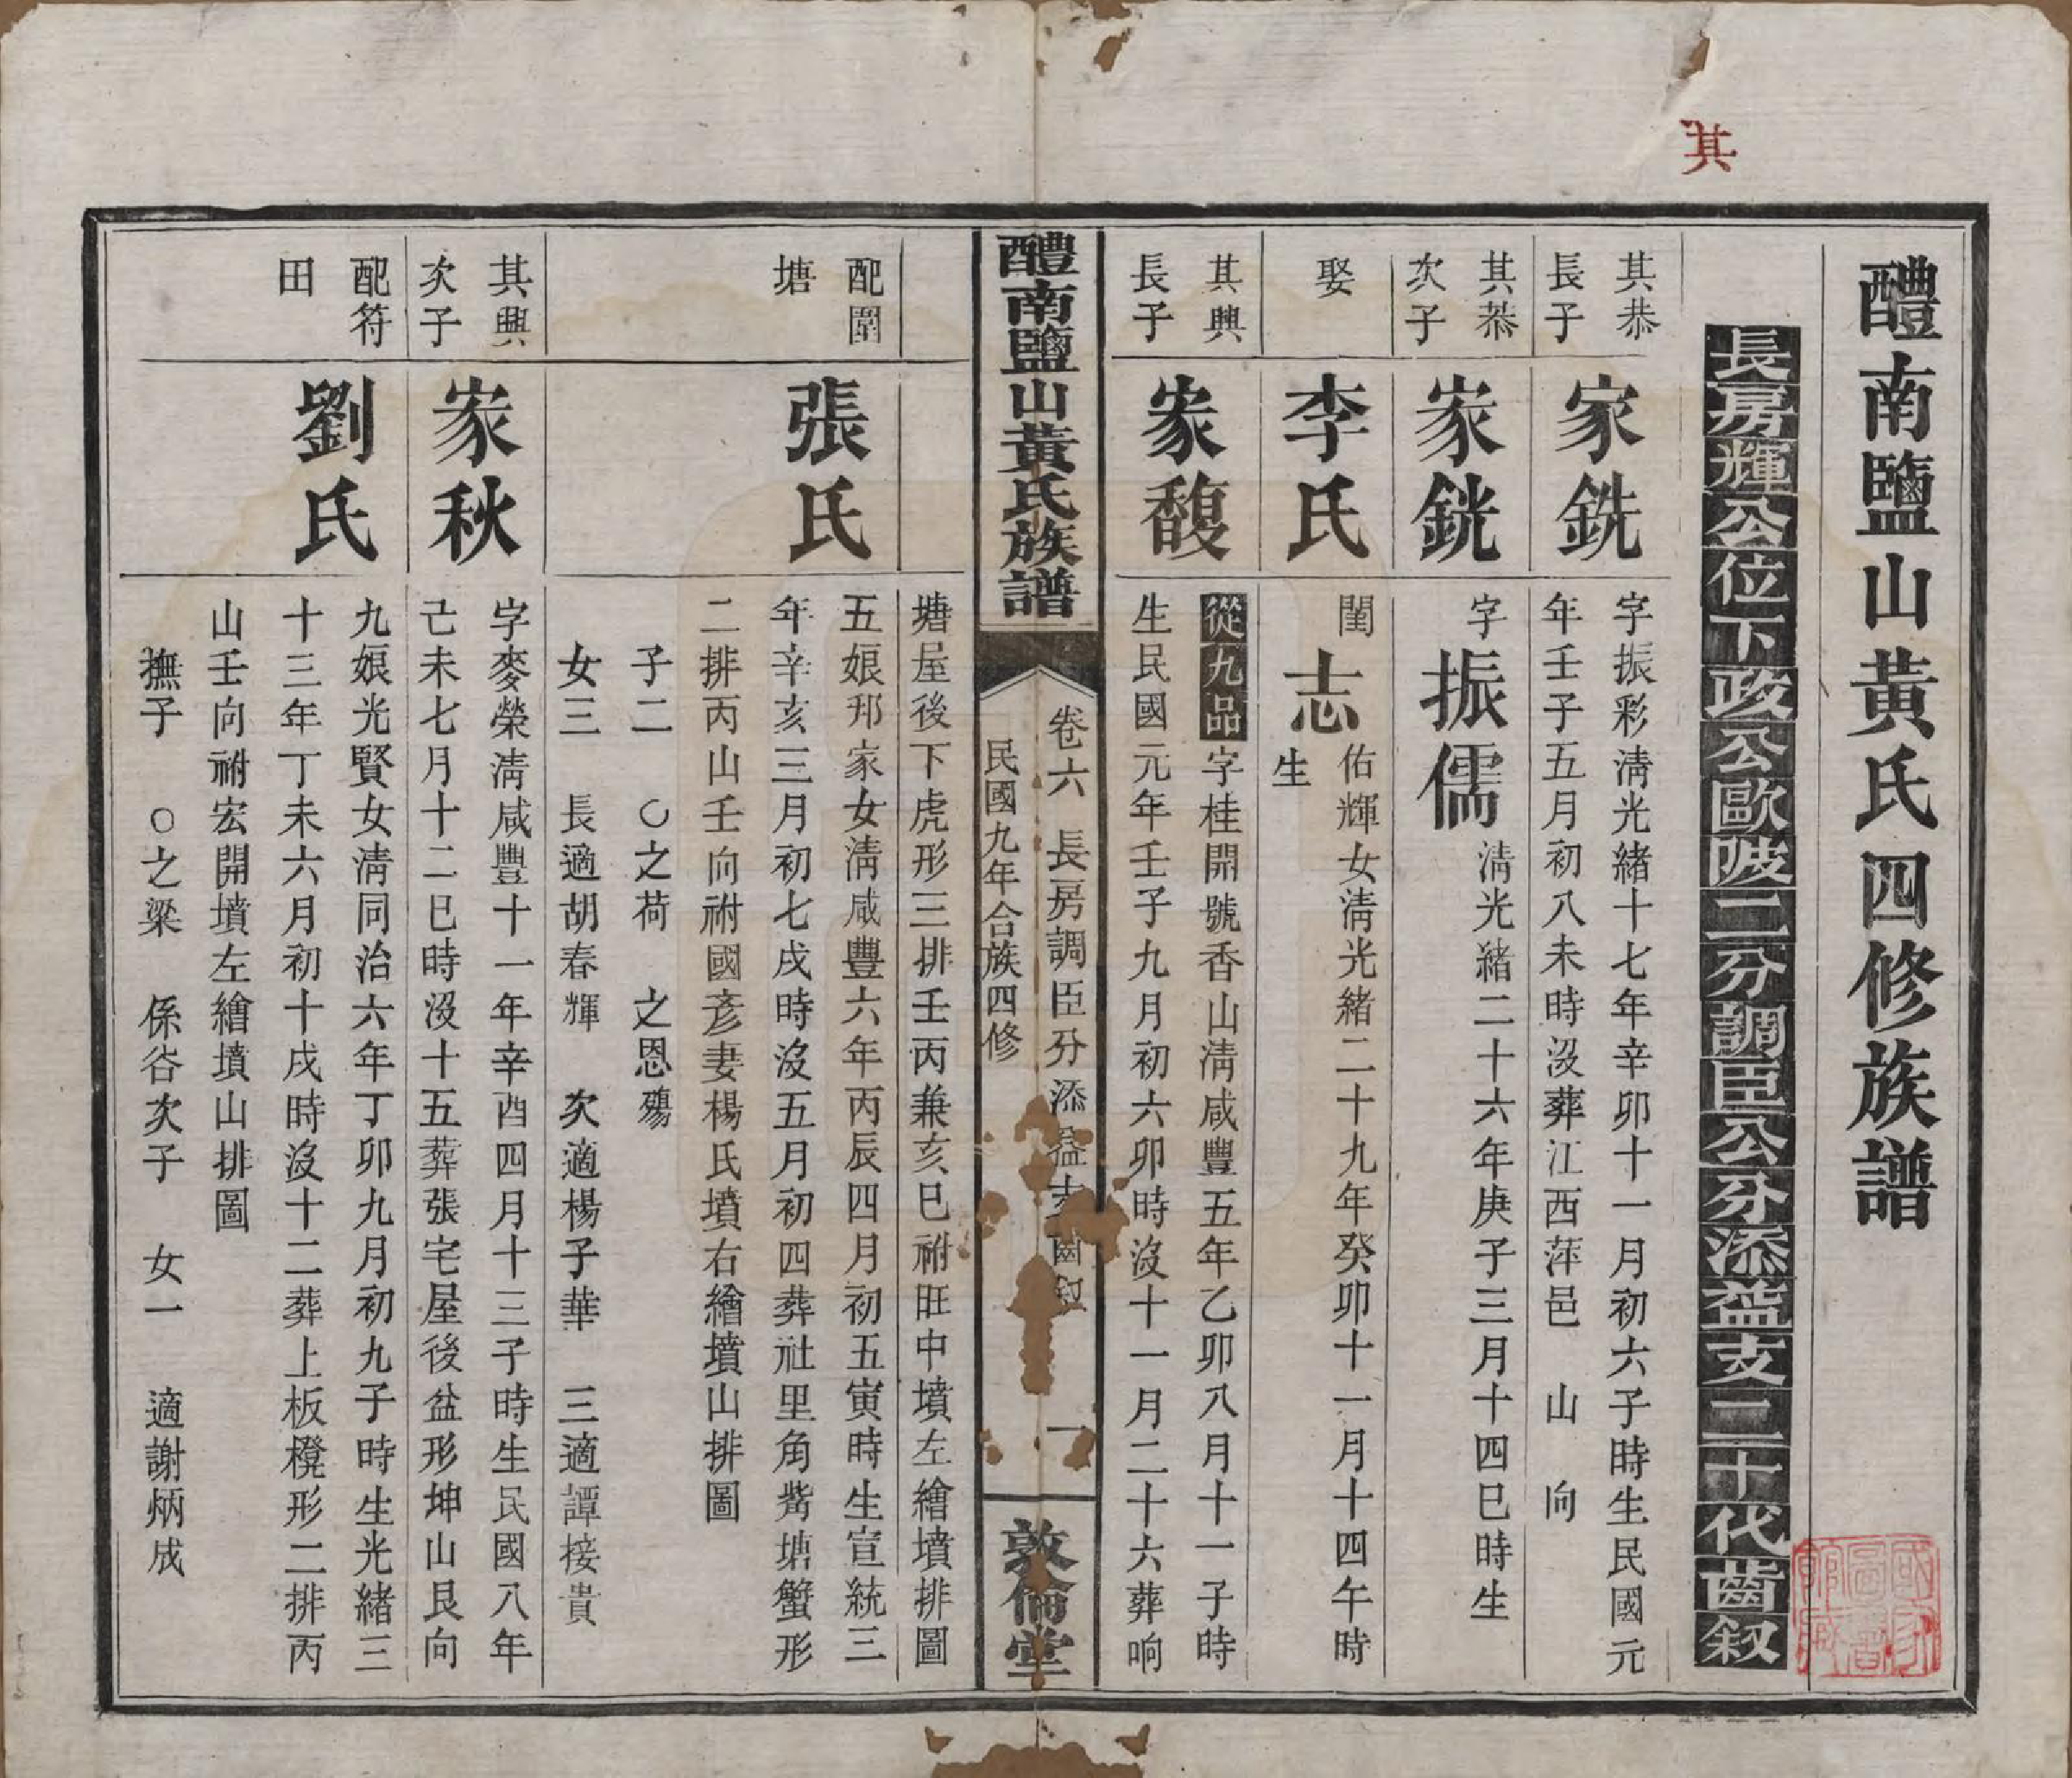 其
醴南鹽山黃氏四修族譜
長房輝公位下政公歐陂二分調臣公分添益支二十代齒叙
其恭長子
家銑
字振彩淸光緒十七年辛卯十一月初六子時生民國元
年壬子五月初八未時沒葬江西萍邑 山 向
其恭次子
家銧
字振儒淸光緒二十六年庚子三月十四巳時生
娶
李氏
閨志佑輝女淸光緒二十九年癸卯十一月十四午時
生
其興長子
家馥
從九品字桂開號香山淸咸豐五年乙卯八月十一子時
生民國元年壬子九月初六卯時沒十一月二十六葬响
醴南鹽山黃氏族譜
卷六 長房調臣分添益支齒叙 一
民國九年合族四修
敦倫堂
塘屋後下虎形三排壬丙兼亥巳祔旺中墳左繪墳排圖
配圍塘
張氏
五娘邦家女淸咸豐六年丙辰四月初五寅時生宣統三
年辛亥三月初七戌時沒五月初四葬社里角觜塘蟹形
二排丙山壬向祔國彦妻楊氏墳右繪墳山排圖
子二 ○之荷 之恩殤
女三 長適胡春輝 次適楊子華 三適譚接貴
其興次子
家秋
字麥榮淸咸豐十一年辛酉四月十三子時生民國八年
己未七月十二巳時沒十五葬張宅屋後盆形坤山艮向
配符田
劉氏
九娘光賢女淸同治六年丁卯九月初九子時生光緒三
十三年丁未六月初十戌時沒十二葬上板櫈形二排丙
山壬向祔宏開墳左繪墳山排圖
撫子 ○之梁 係谷次子 女一 適謝炳成
國家圖書館藏